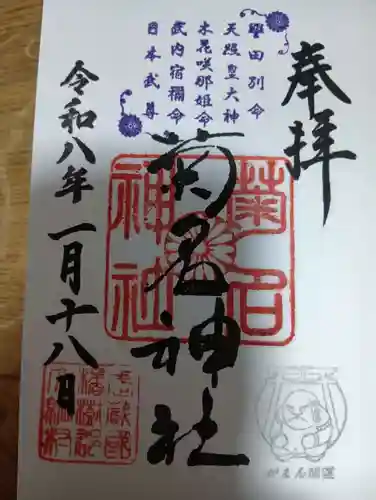 奉拝
誉田別命
天照皇大神
木花咲耶姫命
武内宿禰命
日本武尊
菊名神社
菊名
神社
令和八年一月十八日
武蔵国
橘樹郡
がまん開運